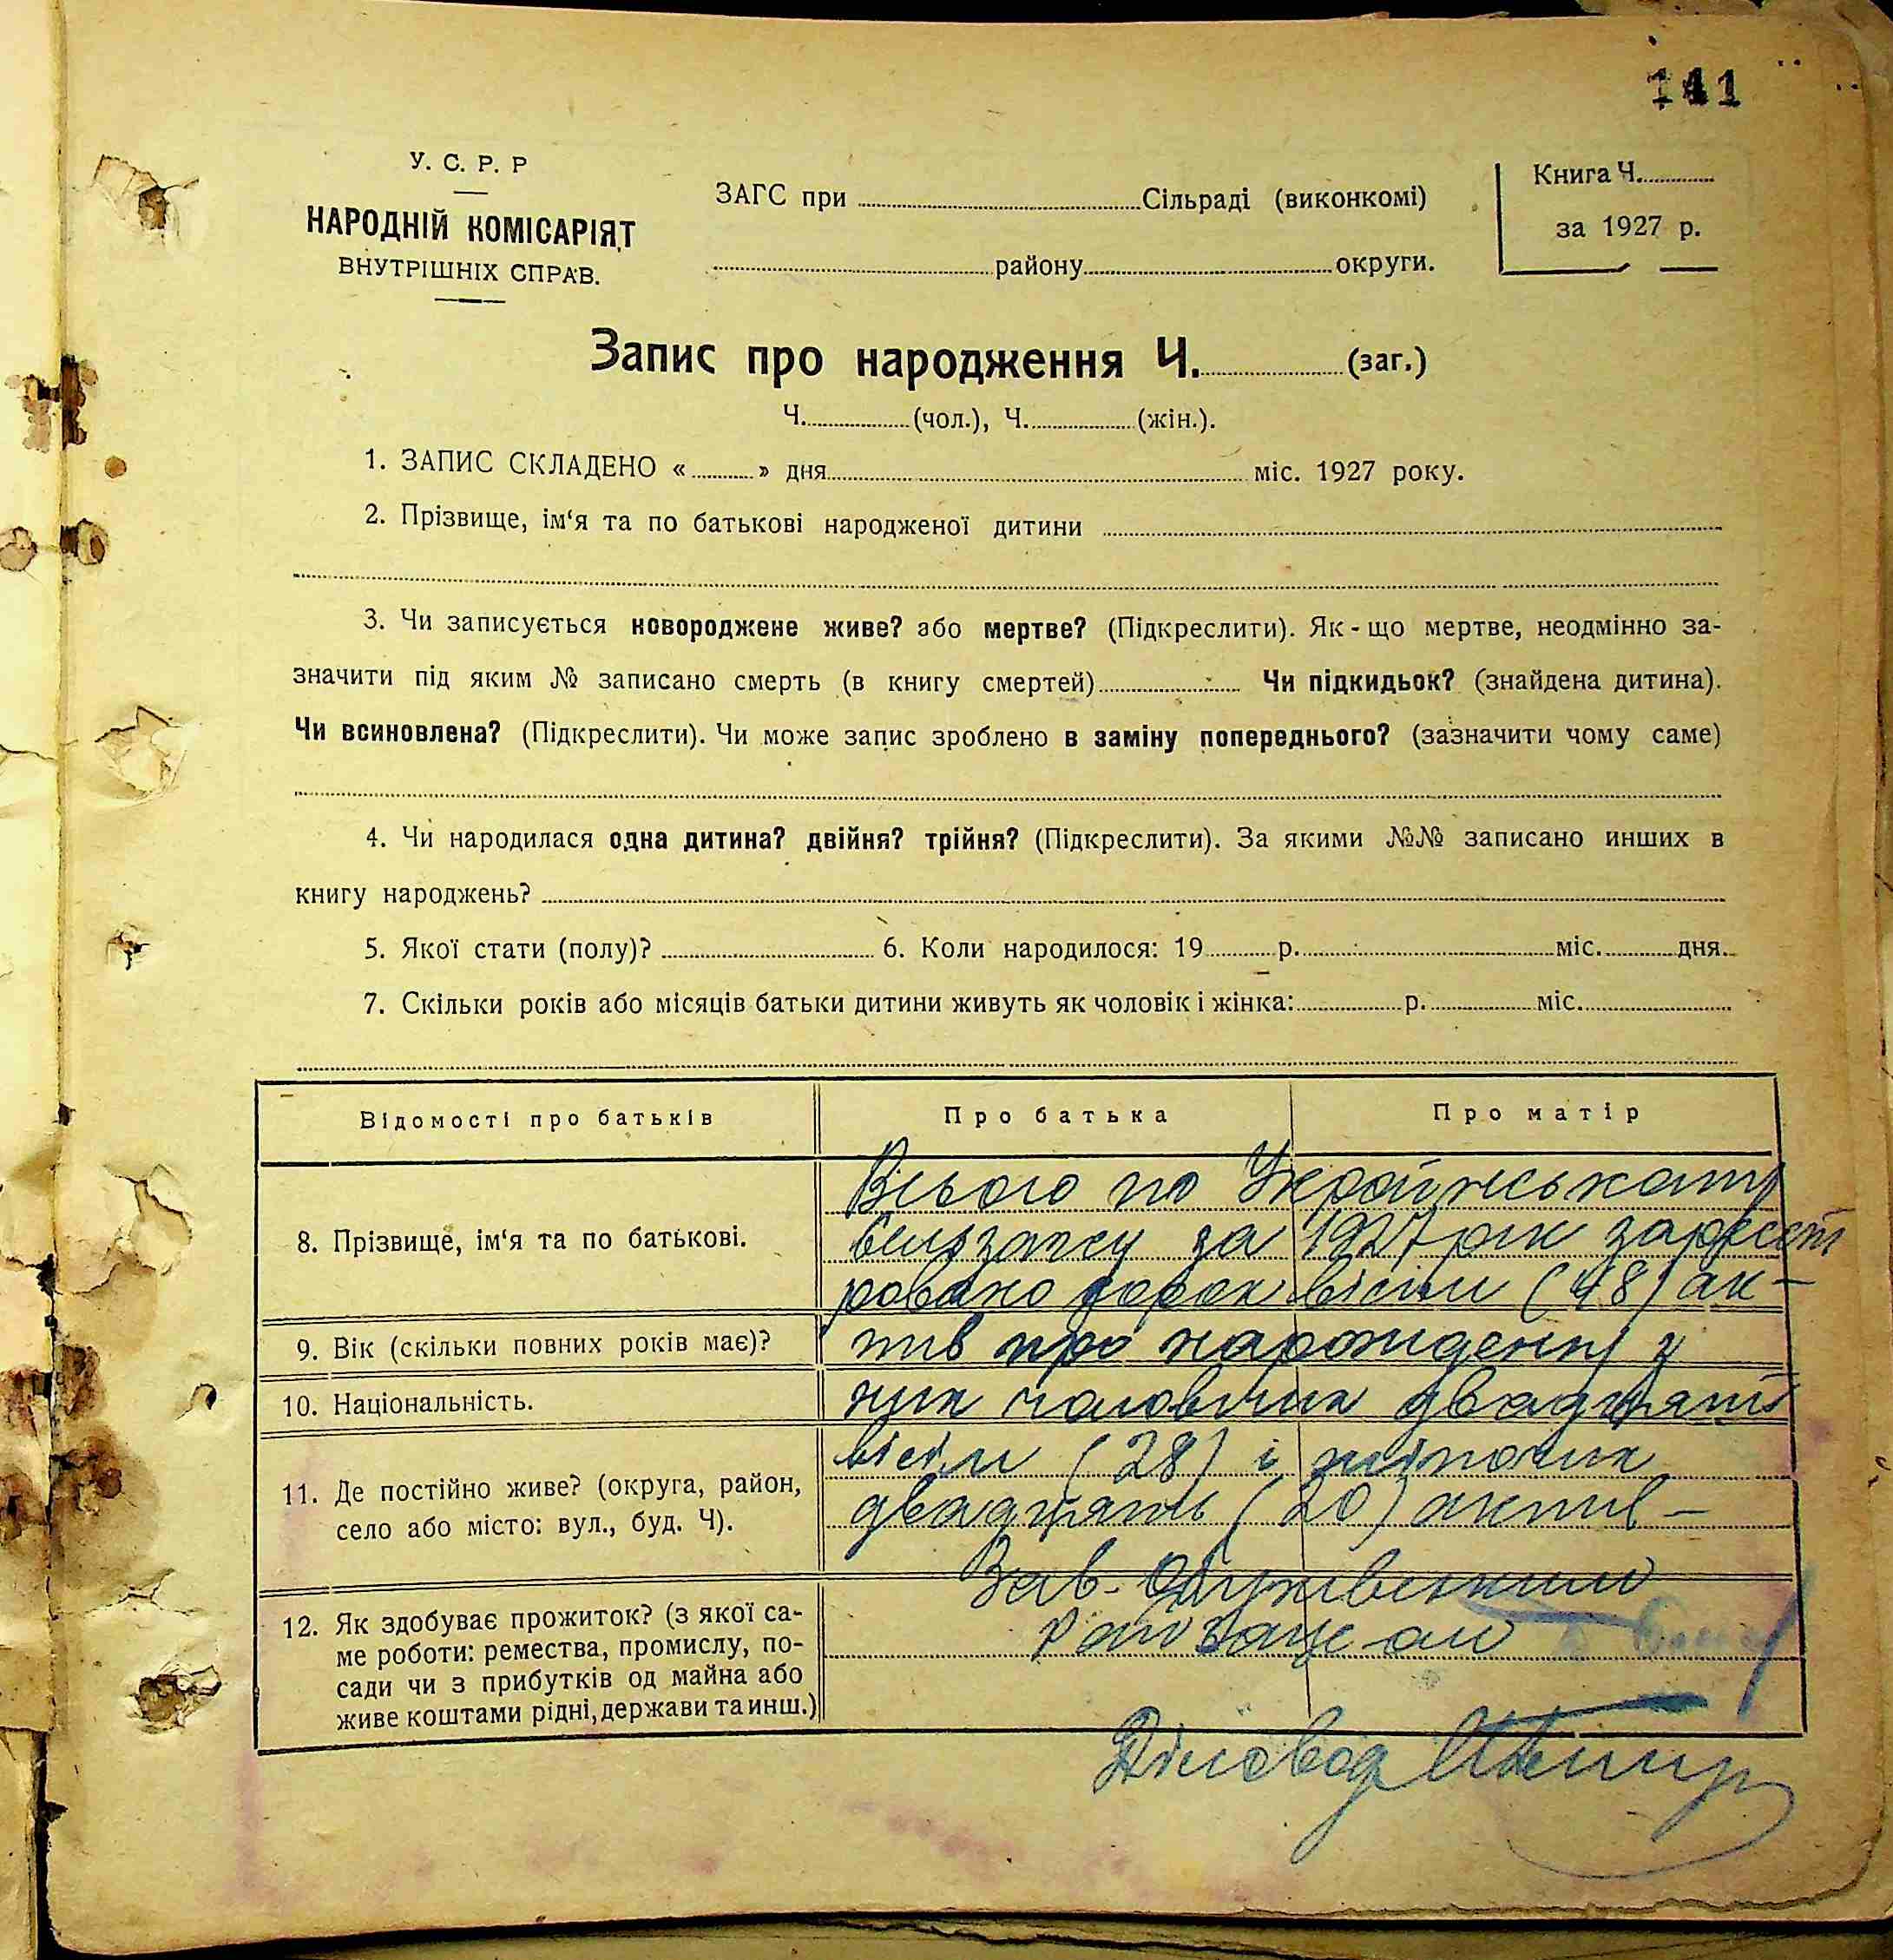 141
У. С. Р. Р
НАРОДНІЙ КОМІСАРІЯТ
ВНУТРІШНІХ СПРАВ.
ЗАГС при ........ Сільраді (виконкомі)
........ району ........ округи.
Книга Ч. ........
за 1927 р.
Запис про народження Ч. ........ (заг.)
Ч. ........ (чол.), Ч. ........ (жін.).
1. ЗАПИС СКЛАДЕНО « ........ » дня ........ міс. 1927 року.
2. Прізвище, ім‘я та по батькові народженої дитини
3. Чи записується новороджене живе? або мертве? (Підкреслити). Як-що мертве, неодмінно за-
значити під яким № записано смерть (в книгу смертей) ........ Чи підкидьок? (знайдена дитина).
Чи всиновлена? (Підкреслити). Чи може запис зроблено в заміну попереднього? (зазначити чому саме)
4. Чи народилася одна дитина? двійня? трійня? (Підкреслити). За якими №№ записано инших в
книгу народжень?
5. Якої стати (полу)? ........ 6. Коли народилося: 19 ........ р. ........ міс. ........ дня.
7. Скільки років або місяців батьки дитини живуть як чоловік і жінка: ........ р. ........ міс.
Відомості про батьків
Про батька
Про матір
8. Прізвище, ім‘я та по батькові.
9. Вік (скільки повних років має)?
10. Національність.
11. Де постійно живе? (округа, район,
село або місто: вул., буд. Ч).
12. Як здобуває прожиток? (з якої са-
ме роботи: ремества, промислу, по-
сади чи з прибутків од майна або
живе коштами рідні, держави та инш.)
Всього по Українськату
за 1927 рік зареєст
ровано сорок вісім (48) ак-
тів про нарождення з
них чоловічих двадцять
вісім (28) і жіночих
двадцять (20) актів –
Зав.
Діловод